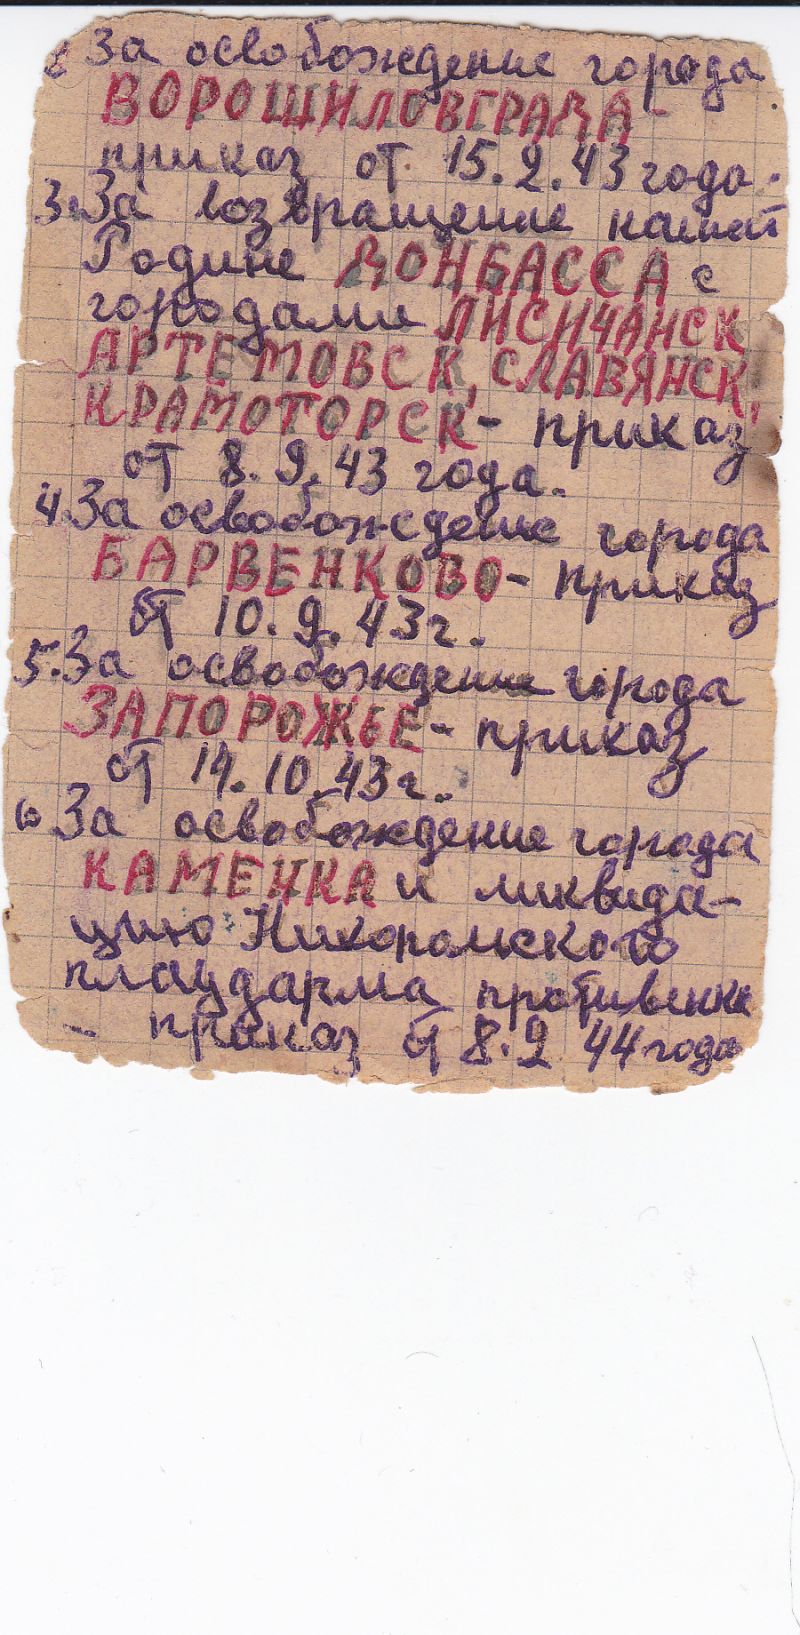 2 За освобождение города
ВОРОШИЛОВГРАДА -
приказ от 15.2.43 года.
3. За возвращение нашей
Родине ДОНБАССА с
городами ЛИСИЧАНСК
АРТЕМОВСК, СЛАВЯНСК,
КРАМОТОРСК - приказ
от 8.9.43 года.
4. За освобождение города
БАРВЕНКОВО - приказ
от 10.9.43 г.
5. За освобождение города
ЗАПОРОЖЬЕ - приказ
от 14.10.43 г.
6 За освобождение города
КАМЕНКА и ликвида-
цию Никоромского
плаударма противника
- приказ от 8.2 44 года